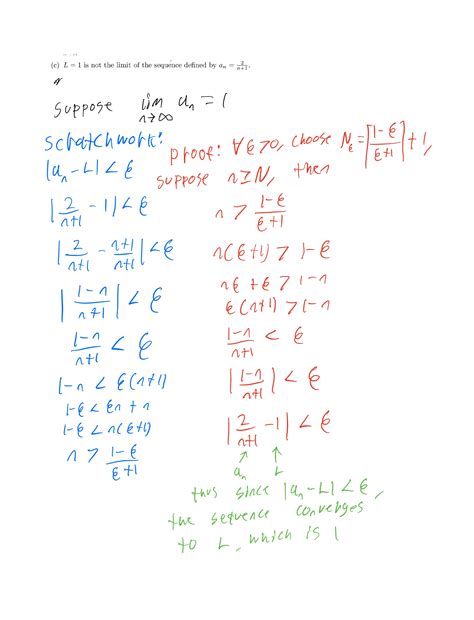 (c) L = 1 is not the limit of the sequence defined by aₙ = 2/(n+1).
suppose lim n→∞ aₙ = 1
scratchwork:
|aₙ - L| < ε
|2/(n+1) - 1| < ε
|2/(n+1) - (n+1)/(n+1)| < ε
|(1-n)/(n+1)| < ε
(1-n)/(n+1) < ε
1-n < ε(n+1)
1-ε < εn + n
1-ε < n(ε+1)
n > (1-ε)/(ε+1)
proof: ∀ε>0, choose N_ε = ⌈(1-ε)/(ε+1)⌉ + 1,
suppose n ≥ N, then
n > (1-ε)/(ε+1)
n(ε+1) > 1-ε
nε + ε > 1-n
ε(n+1) > 1-n
(1-n)/(n+1) < ε
|(1-n)/(n+1)| < ε
|2/(n+1) - 1| < ε
↑ ↑
aₙ L
thus since |aₙ-L| < ε,
the sequence converges
to L, which is 1